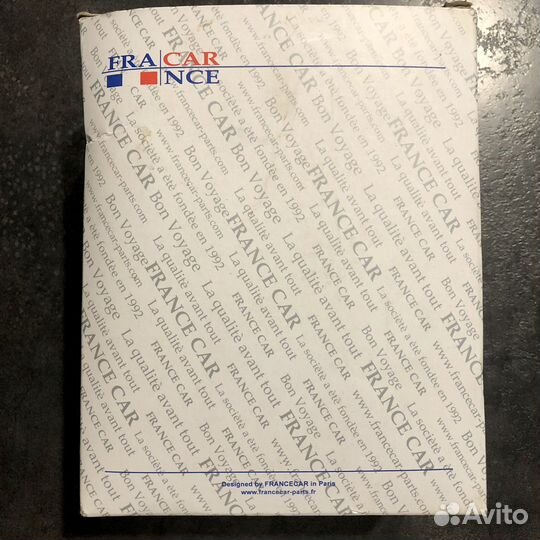 FRA CAR
NCE
FRANCE CAR Bon Voyage
La société a été fondée en 1992
www.francecar-paris.com
La qualitè avant tout
Designed by FRANCECAR in Paris
www.francecar-paris.fr
Avito